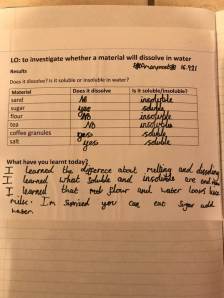 LO: to investigate whether a material will dissolve in water
Results
Does it dissolve? Is it soluble or insoluble in water?
Material Does it dissolve Is it soluble/insoluble?
sand No insoluble
sugar yes soluble
flour No insoluble
tea No insoluble
coffee granules yes soluble
salt yes soluble
What have you learnt today?
I learned the differece about melting and
I learned what soluble and insoluble are and
I learned that flour and water looks
milk. I'm you can eat Sugar and
water.